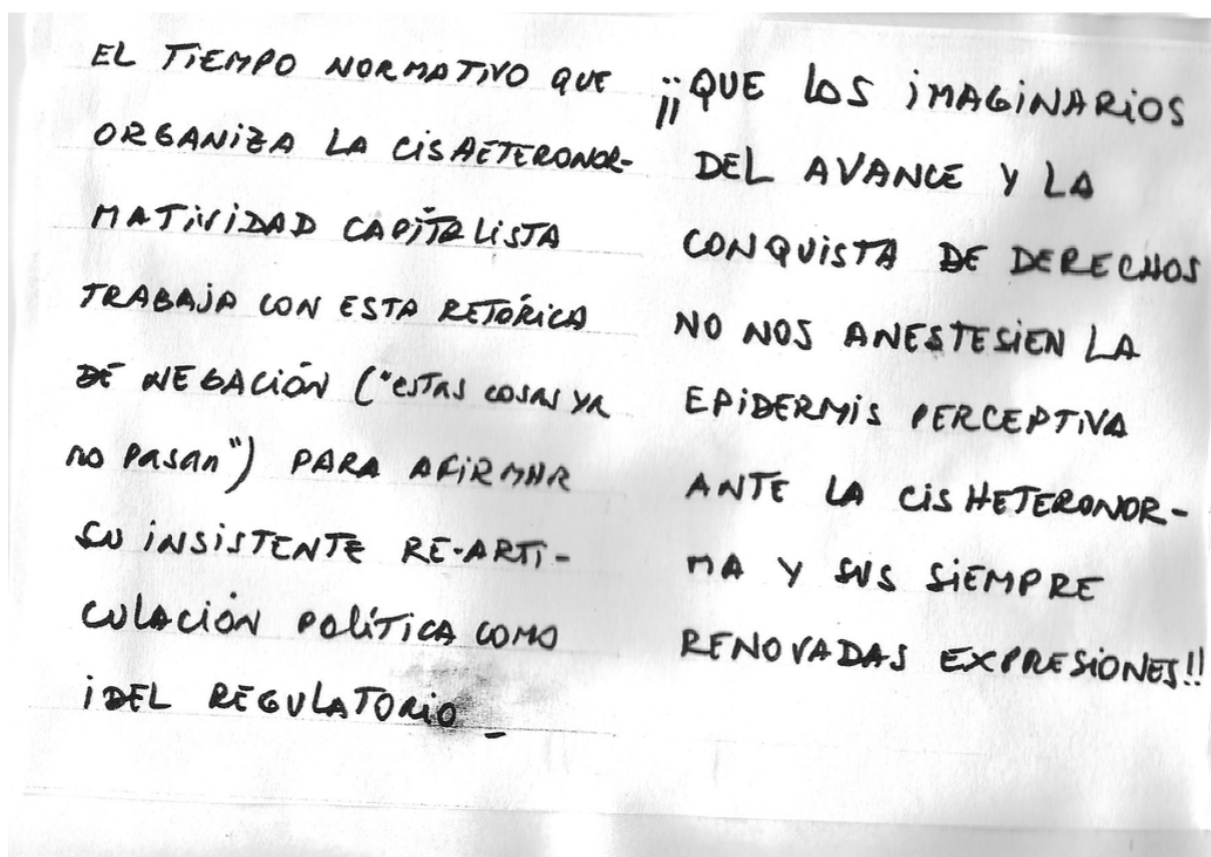 EL TIEMPO NORMATIVO QUE
ORGANIZA LA CISHETERONOR-
MATIVIDAD CAPITALISTA
TRABAJA CON ESTA RETÓRICA
DE NEGACIÓN ("ESTAS COSAS YA
NO PASAN") PARA AFIRMAR
SU INSISTENTE RE-ARTI-
CULACIÓN POLÍTICA COMO
IDEL REGULATORIO_
¡¡QUE LOS IMAGINARIOS
DEL AVANCE Y LA
CONQUISTA DE DERECHOS
NO NOS ANESTESIEN LA
EPIDERMIS PERCEPTIVA
ANTE LA CISHETERONOR-
MA Y SUS SIEMPRE
RENOVADAS EXPRESIONES!!